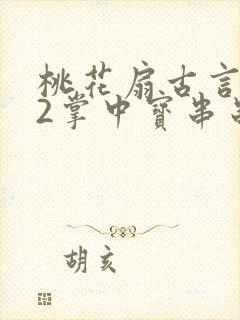 桃花扇古言
2掌中寶串
胡亥